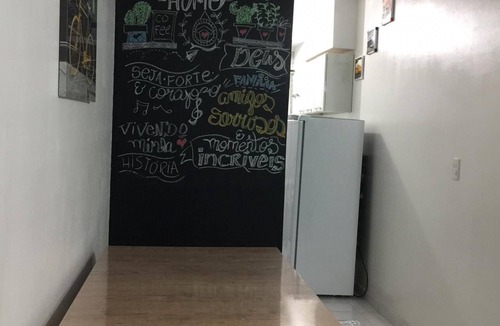 HOME
COFFEE
Deus
SEJA FORTE
FAMÍLIA
e corajoso
amigos
sorrisos
VIVENDO
minha
momentos
HISTÓRIA
incríveis